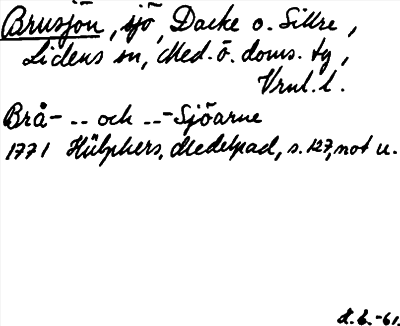 Brusjön, sjö, Dacke o. Sillre,
Lidens sn, Med. ö. doms. tg,
Vrnl. l.
Brå- -- och --- Sjöarne
1771 Hülphers, Medelpad, s. 127, not u.
-61.